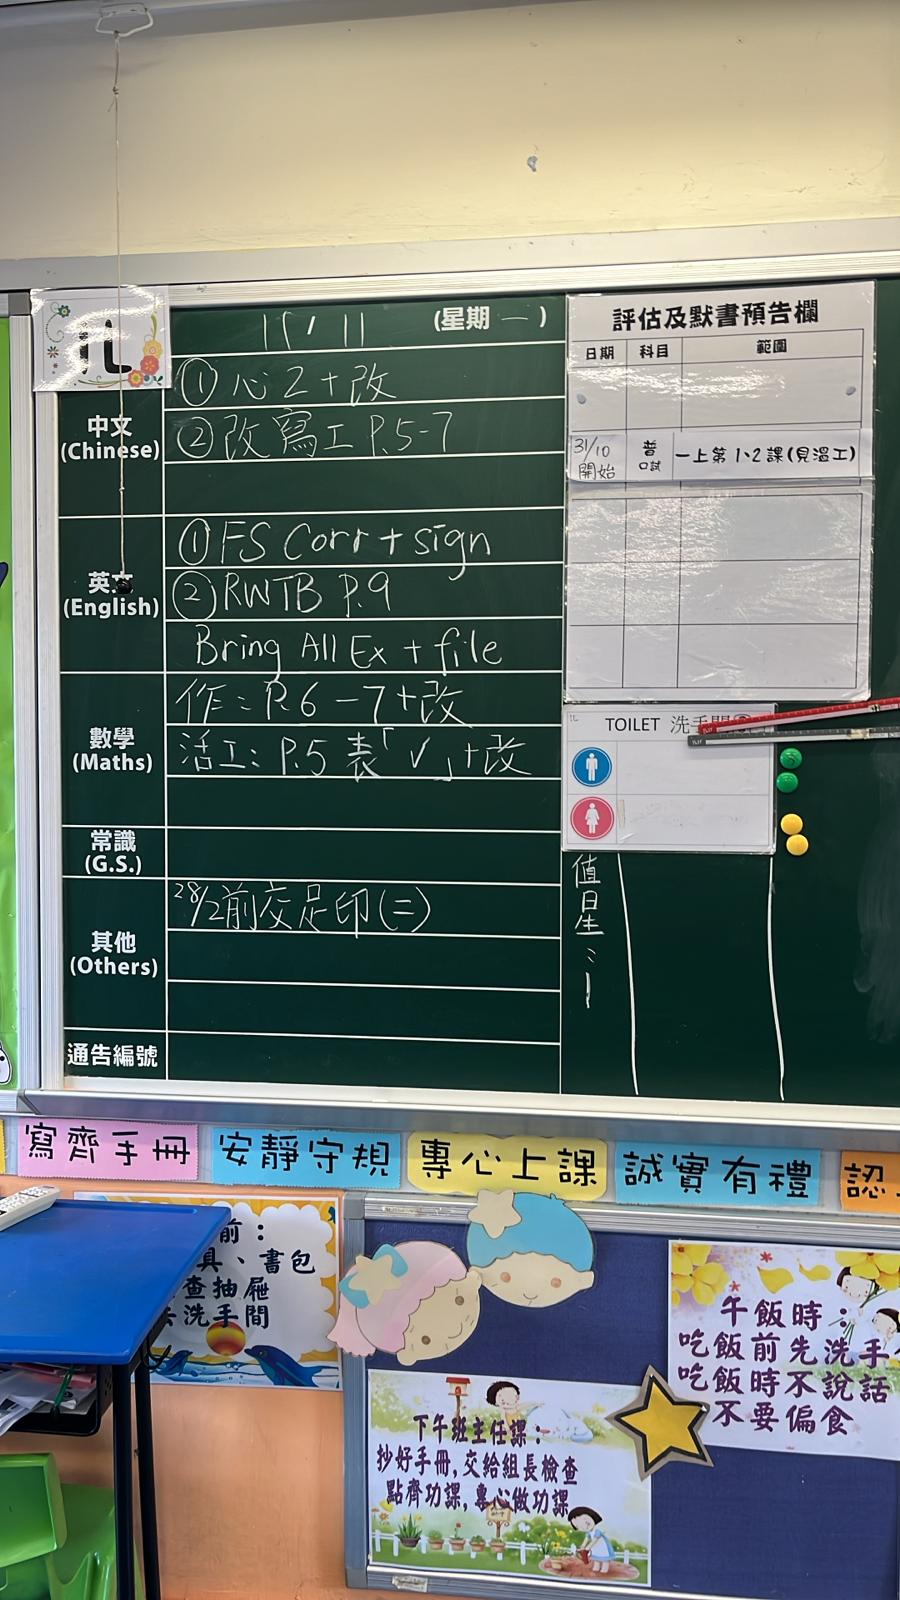 1L
11 / 11 (星期一)
中文
(Chinese)
① 心2+改
② 改寫工 P.5-7
英文
(English)
① FS Corr + sign
② RWTB P.9
Bring All Ex + file
數學
(Maths)
作：P.6-7+改
活工：P.5 表「✓」+改
常識
(G.S.)
其他
(Others)
28/2前交足印(二)
通告編號
評估及默書預告欄
日期 科目 範圍
31/10
開始
普
口試
一上第1、2課(見溫工)
1L
TOILET 洗手間
值日生：1
寫齊手冊
安靜守規
專心上課
誠實有禮
認
前：
具、書包
查抽屜
洗手間
午飯時：
吃飯前先洗手
吃飯時不說話
不要偏食
下午班主任課：
抄好手冊,交給組長檢查
點齊功課,專心做功課